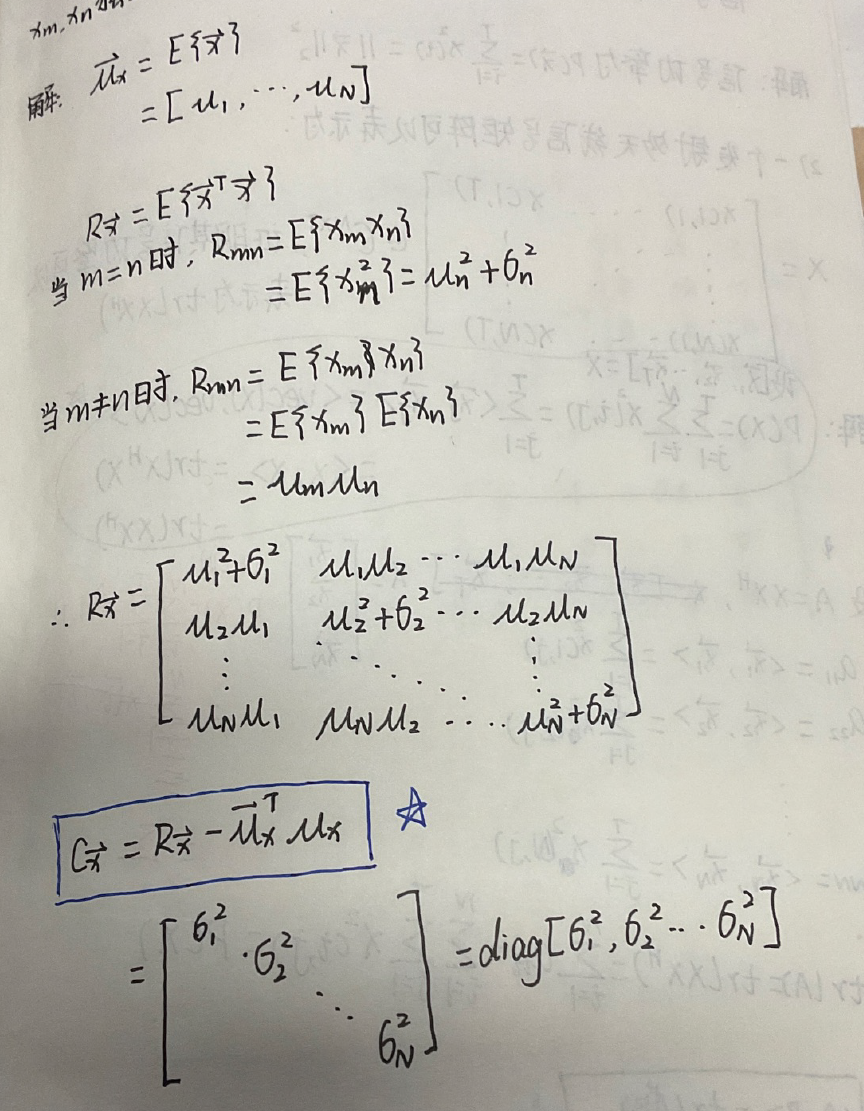 xm, xn
解: μ⃗x = E{x⃗}
= [μ1, ⋯, μN]
Rx⃗ = E{x⃗ᵀx⃗}
当m=n时, Rmn = E{xmxn}
= E{xm²} = μn² + σn²
当m≠n时, Rmn = E{xmxn}
= E{xm} E{xn}
= μmμn
∴ Rx⃗ = [ μ1²+σ1² μ1μ2 ⋯ μ1μN
μ2μ1 μ2²+σ2² ⋯ μ2μN
⋮ ⋱ ⋮
μNμ1 μNμ2 ⋯ μN²+σN² ]
Cx⃗ = Rx⃗ − μ⃗xᵀ μx ☆
= [ σ1² σ2² ⋱ σN² ] = diag[σ1², σ2² ⋯ σN²]